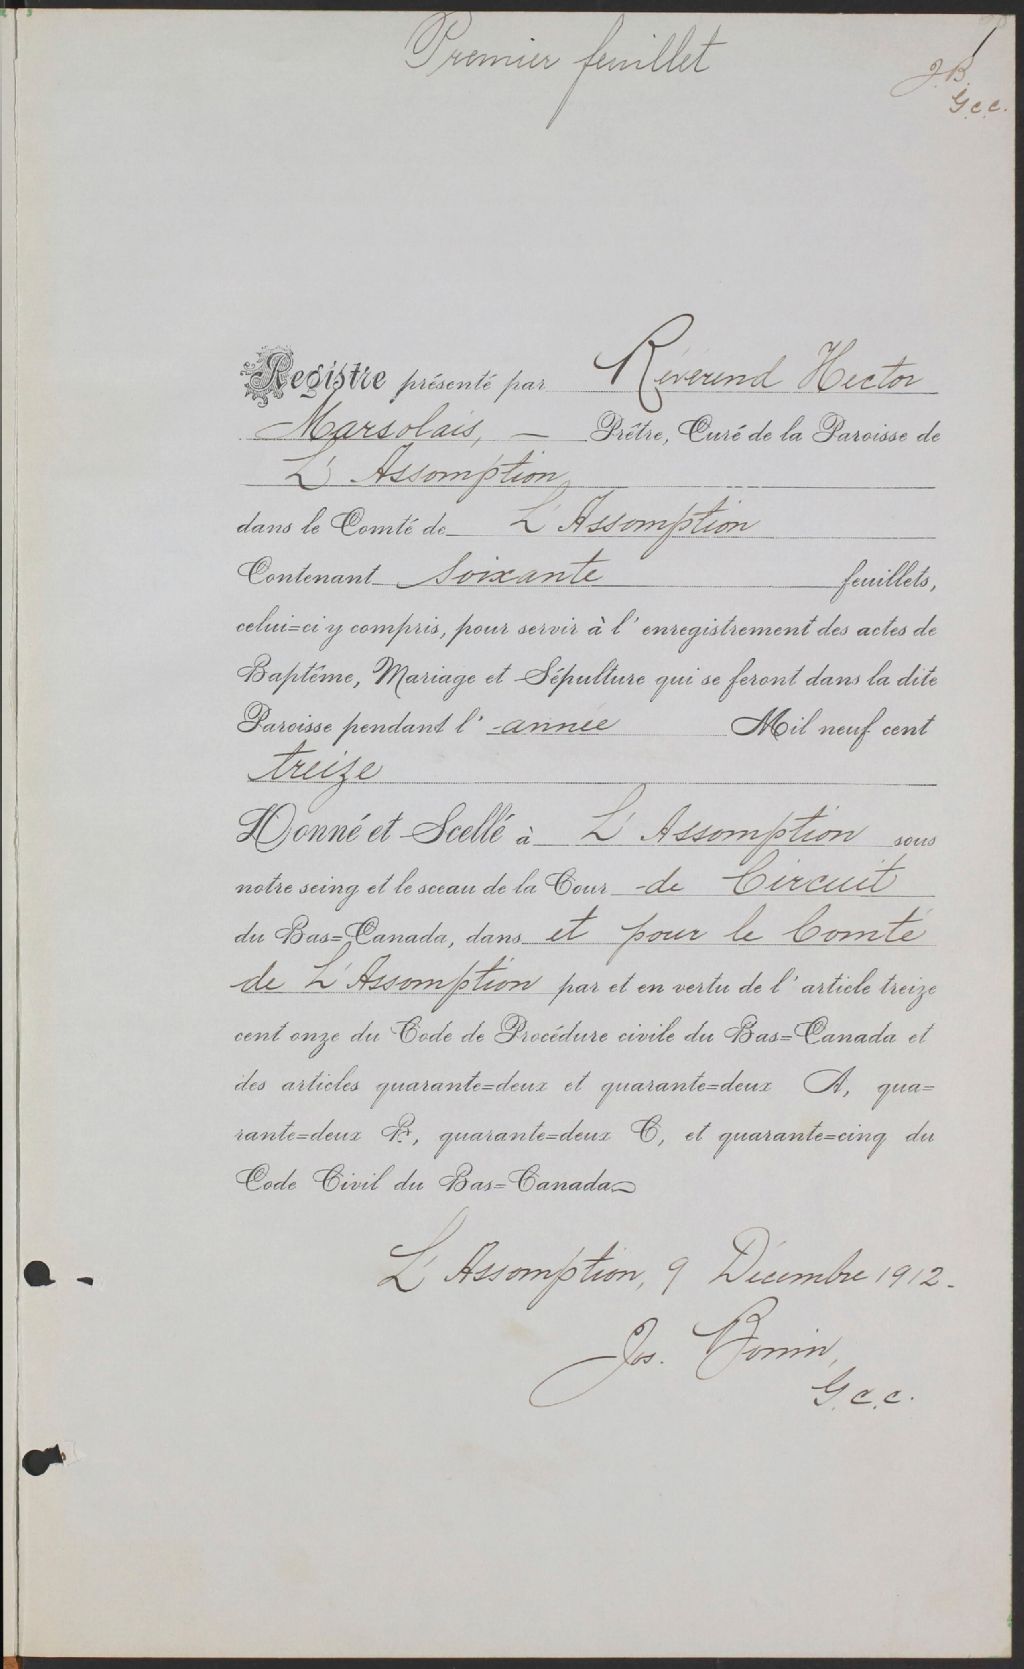 Premier feuillet
1
J.B.
G.c.c.
Registre présenté par Révérend Hector
Marsolais, — Prêtre, Curé de la Paroisse de
L'Assomption
dans le Comté de L'Assomption
Contenant soixante feuillets,
celui=ci y compris, pour servir à l'enregistrement des actes de
Baptême, Mariage et Sépulture qui se feront dans la dite
Paroisse pendant l'année Mil neuf cent
treize
Donné et Scellé à L'Assomption sous
notre seing et le sceau de la Cour de Circuit
du Bas=Canada, dans et pour le Comté
de L'Assomption par et en vertu de l'article treize
cent onze du Code de Procédure civile du Bas=Canada et
des articles quarante=deux et quarante=deux A, qua=
rante=deux B, quarante=deux C, et quarante=cinq du
Code Civil du Bas=Canada
L'Assomption, 9 Décembre 1912.
Jos. Bonin,
G.c.c.